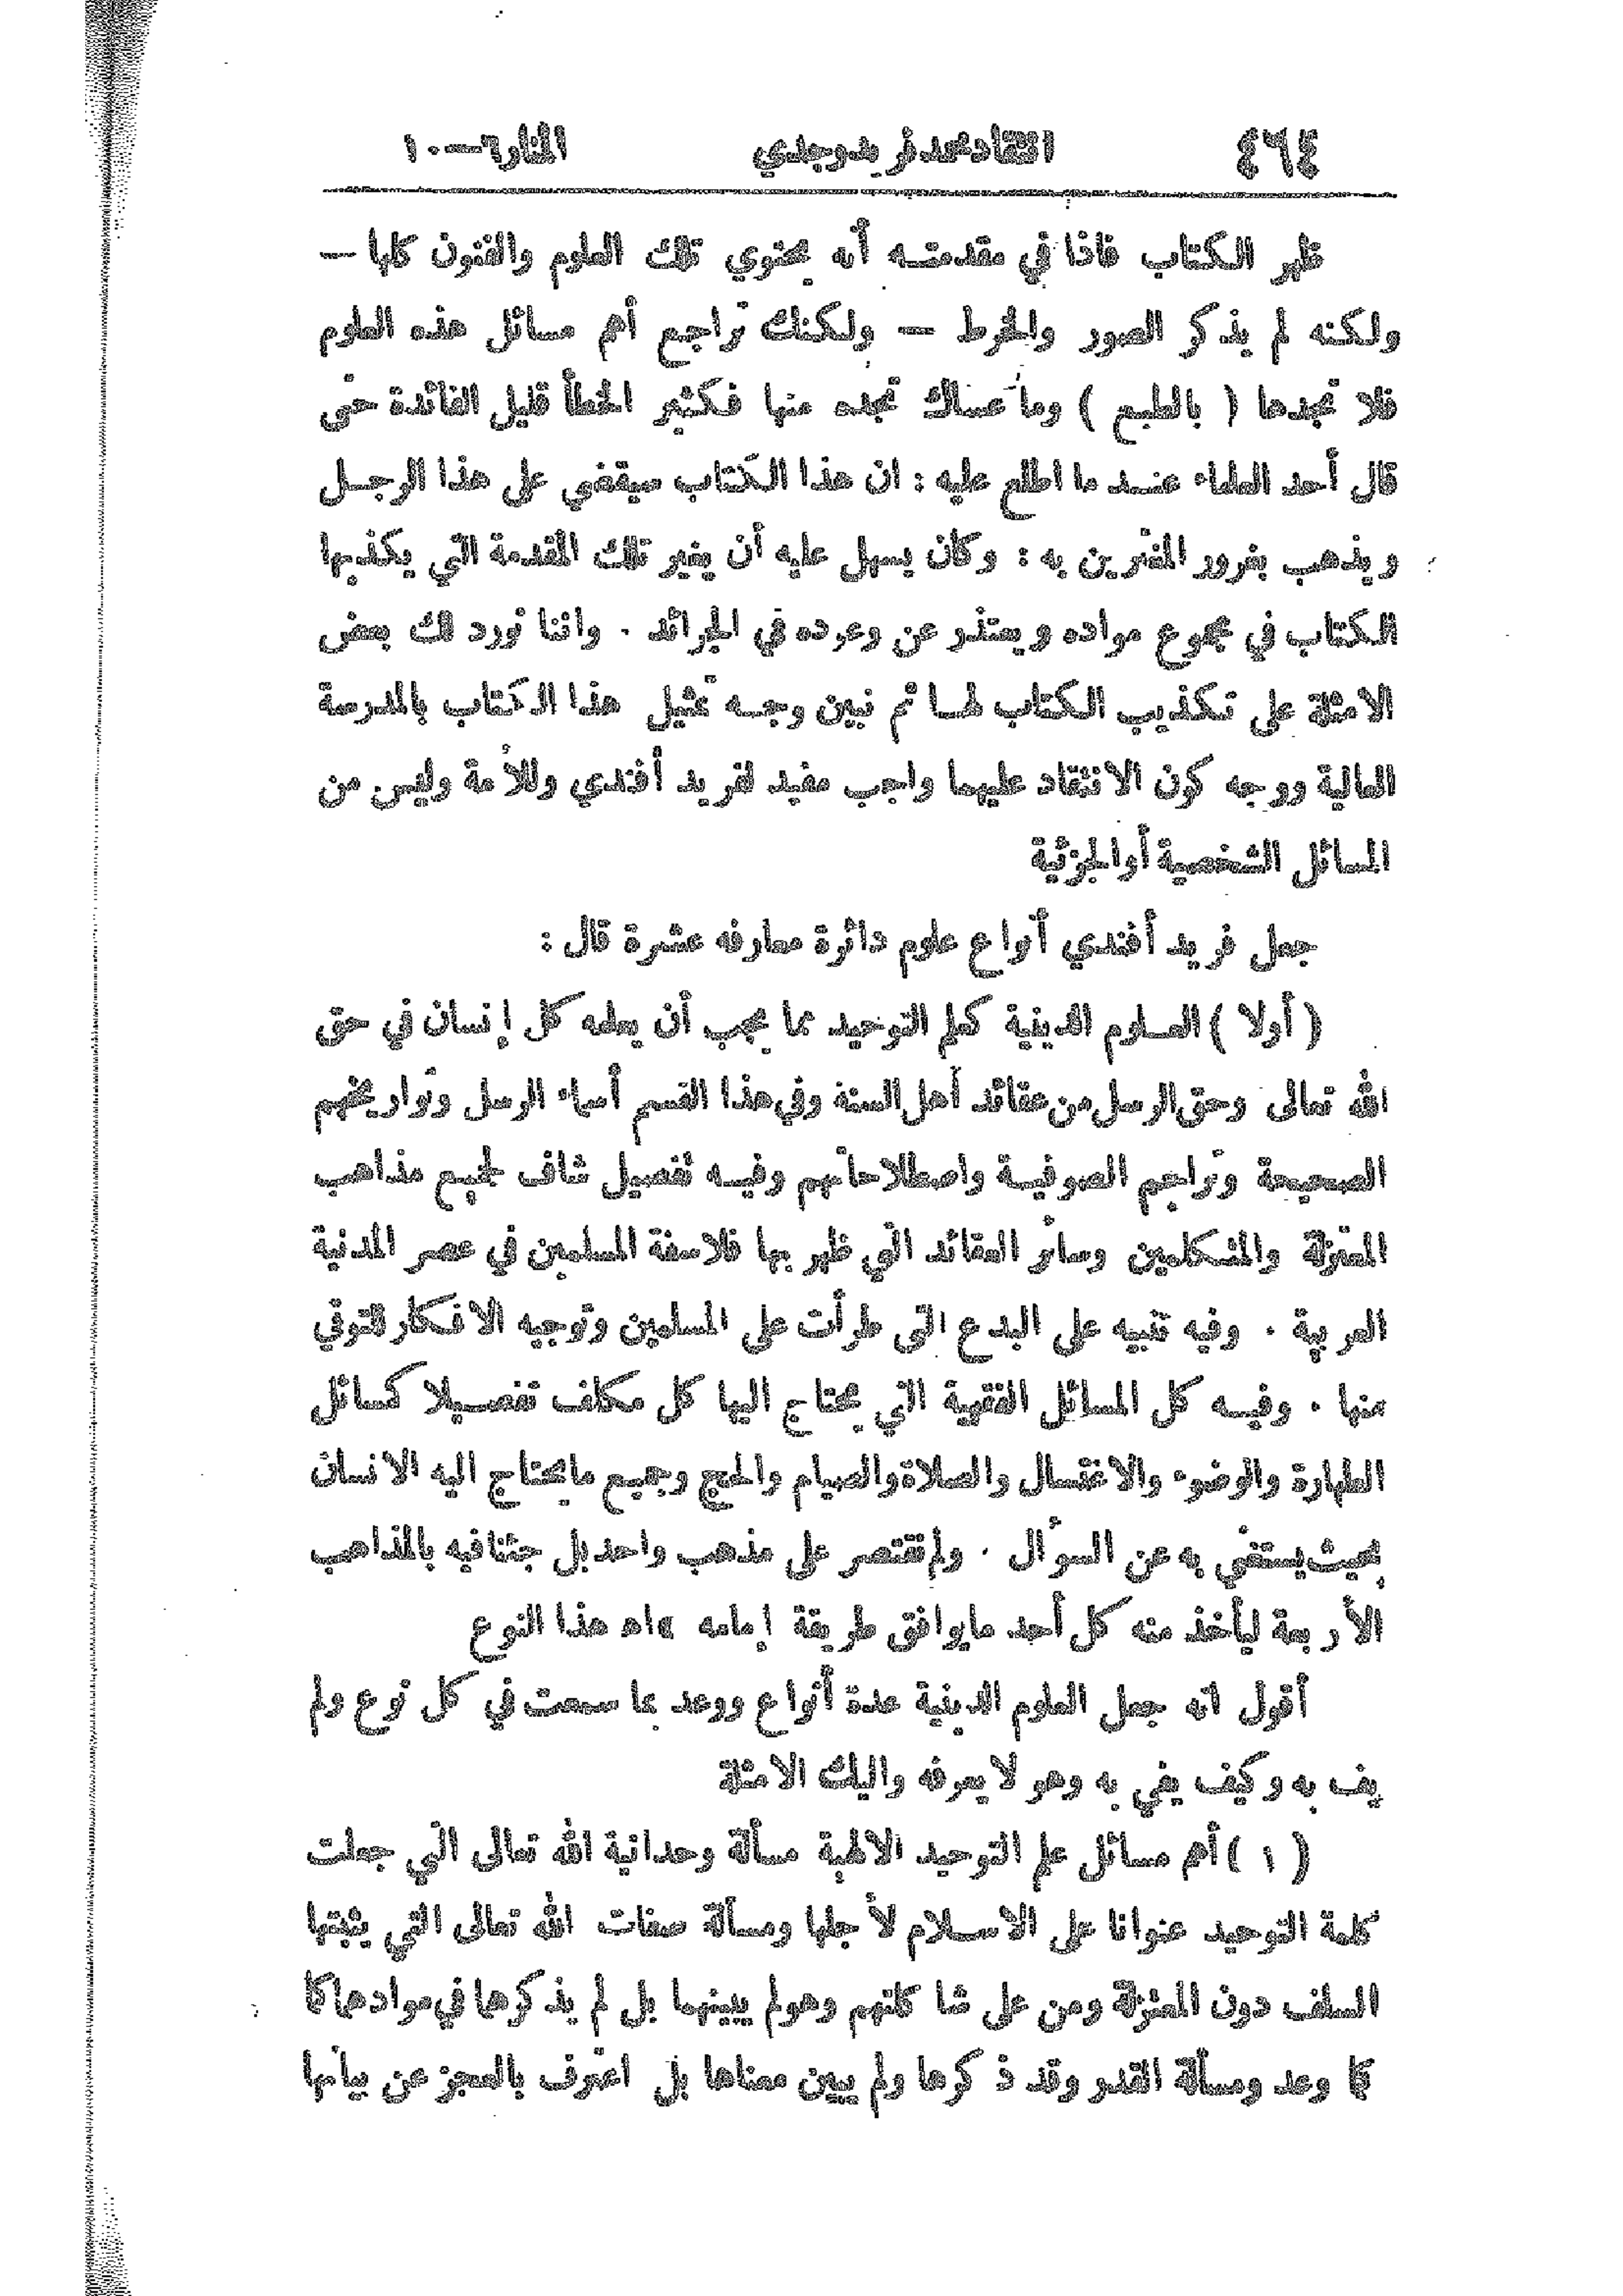 ٤٦٤ انتقاد محمد فريد وجدي المنار ٦—١٠
ظهر الكتاب فاذا في مقدمتـه أنه يحتوي تلك العلوم والفنون كلها —
ولكنه لم يذكر الصور والخرط — ولكنك تراجع أهم مسائل هذه العلوم
فلا تجدها ( بالطبع ) وما عساك تجده منها فكثير الخطأ قليل الفائدة حتى
قال أحد العلماء عنـد ما اطلع عليه : ان هذا الكتاب سيقضي على هذا الرجـل
ويذهب بغرور المغترين به : وكان يسهل عليه أن يغير تلك المقدمة التي يكذبها
الكتاب في مجموع مواده ويعتذر عن وعوده في الجرائد . واننا نورد لك بعض
الامثلة على تكذيب الكتاب لهـا ثم نبين وجـه تمثيل هذا الكتاب بالمدرسة
العالية ووجه كون الانتقاد عليهما واجب مفيد لفريد أفندي وللأمة وليس من
المسائل الشخصية أو الجزئية
جعل فريد أفندي أنواع علوم دائرة معارفه عشرة قال :
( أولا ) العـلوم الدينية كعلم التوحيد مما يجب أن يعلمه كل إنسان في حق
الله تعالى وحق الرسل من عقائد أهل السنة وفي هذا القسم أسماء الرسل وتواريخهم
الصحيحة وتراجم الصوفيـة واصطلاحاتهم وفيـه تفصيل شاف لجميع مذاهب
المعتزلة والمتكلمين وسائر العقائد التي ظهر بها فلاسفة المسلمين في عصر المدنية
العربية . وفيه تنبيه على البدع التى طرأت على المسلمين وتوجيه الافكار للتوقي
منها . وفيـه كل المسائل الفقهية التي يحتاج اليها كل مكلف تفصـيلا كمسائل
الطهارة والوضوء والاغتسال والصلاة والصيام والحج وجميع ما يحتاج اليه الانسان
بحيث يستغني به عن السؤال . ولم نقتصر على مذهب واحد بل جئنا فيه بالمذاهب
الأربعة ليأخذ منه كل أحد ما يوافق طريقة إمامه » اه هذا النوع
أقول انه جعل العلوم الدينية عدة أنواع ووعد بما سمعت في كل نوع ولم
يف به وكيف يفي به وهو لا يعرفه واليك الامثلة
( ١ ) أهم مسائل علم التوحيد الالهية مسألة وحدانية الله تعالى التي جعلت
كلمة التوحيد عنوانا على الاسـلام لأجلها ومسألة صفات الله تعالى التي يثبتها
السلف دون المعتزلة ومن على شاكلتهم وهو لم يبينهما بل لم يذكرها في موادها كما
كما وعد ومسألة القدر وقد ذكرها ولم يبين معناها بل اعترف بالعجز عن بيانها